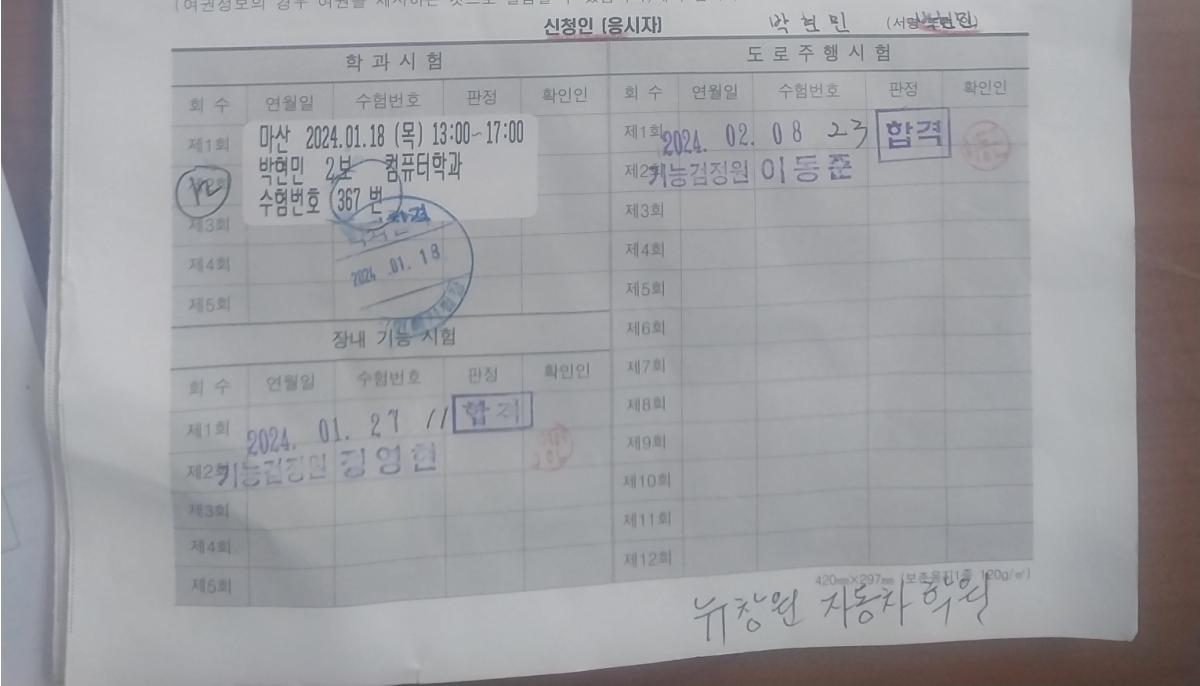 신청인 (응시자) 박현민 (서명
학과시험
회 수 연월일 수험번호 판정 확인인
제1회
마산 2024.01.18 (목) 13:00~17:00
박현민 2보 컴퓨터학과
수험번호 367 번
제3회
합격
제4회 2024 .01. 18
제5회
장내 기능 시험
회 수 연월일 수험번호 판정 확인인
제1회 2024. 01. 27 11 합격
제2 기능검정원
제3회
제4회
제5회
도로주행시험
회 수 연월일 수험번호 판정 확인인
제1회 2024. 02. 08 23 합격
제2 기능검정원 이동준
제3회
제4회
제5회
제6회
제7회
제8회
제9회
제10회
제11회
제12회
420㎜×297㎜ (보존용지1종 120g/㎡)
뉴창원 자동차 학원